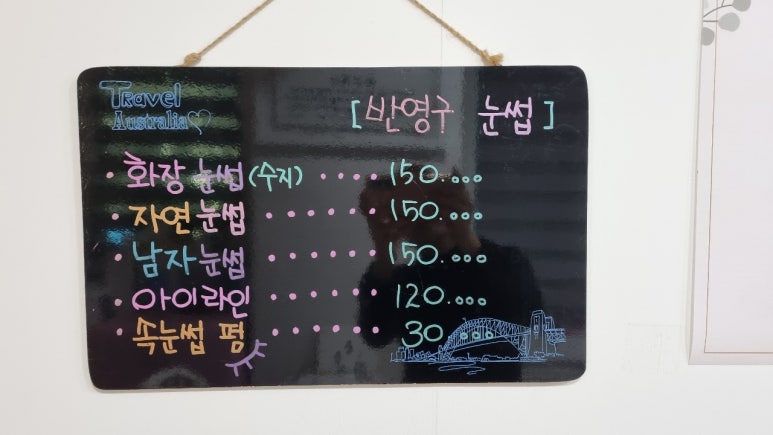 Travel
Australia
[반영구 눈썹]
· 화장 눈썹 (수지) ····· 150.000
· 자연 눈썹 ······ 150.000
· 남자 눈썹 ······ 150.000
· 아이라인 ······ 120.000
· 속눈썹 펌 ······ 30.000